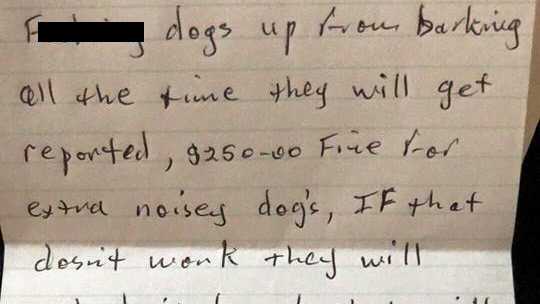 dogs up from barking
all the time they will get
reported, $250-00 Fine for
extra noisey dog's, IF that
dosn't work they will